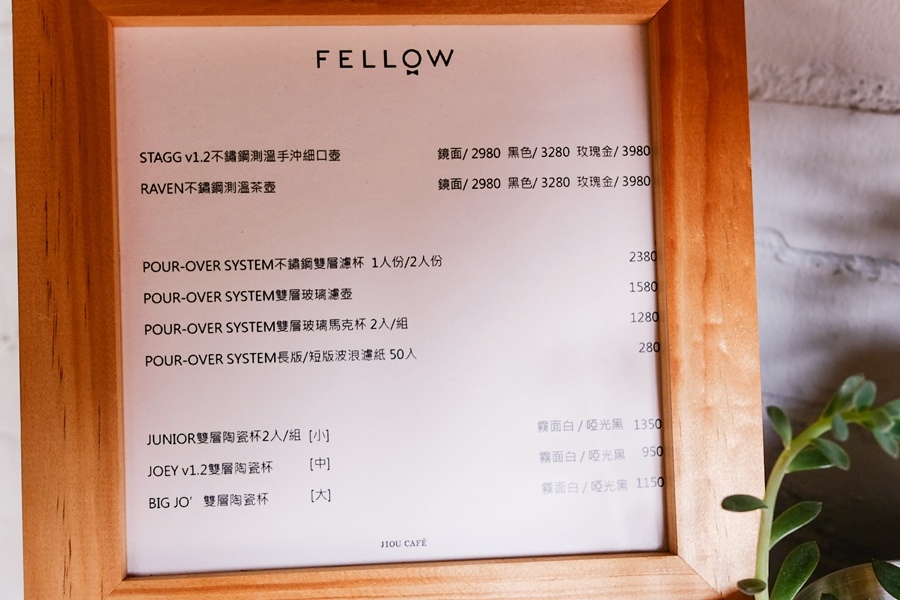 FELLOW
STAGG v1.2不鏽鋼測溫手沖細口壺 鏡面/ 2980 黑色/ 3280 玫瑰金/ 3980
RAVEN不鏽鋼測溫茶壺 鏡面/ 2980 黑色/ 3280 玫瑰金/ 3980
POUR-OVER SYSTEM不鏽鋼雙層濾杯 1人份/2人份 2380
POUR-OVER SYSTEM雙層玻璃濾壺 1580
POUR-OVER SYSTEM雙層玻璃馬克杯 2入/組 1280
POUR-OVER SYSTEM長版/短版波浪濾紙 50入 280
JUNIOR雙層陶瓷杯2入/組 [小] 霧面白 / 啞光黑 1350
JOEY v1.2雙層陶瓷杯 [中] 霧面白 / 啞光黑 950
BIG JO' 雙層陶瓷杯 [大] 霧面白 / 啞光黑 1150
JIOU CAFÉ